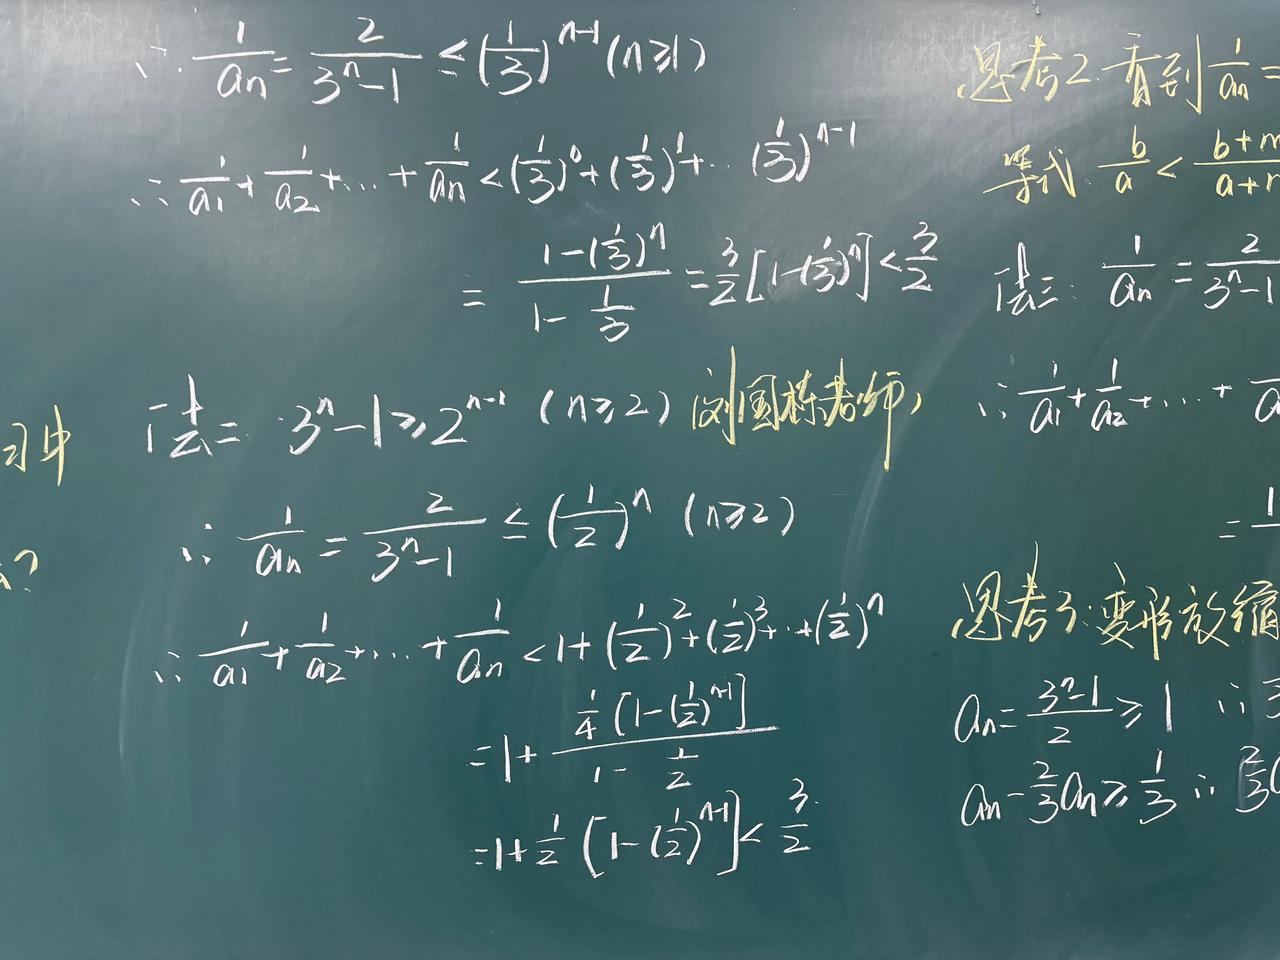 ∴ 1/aₙ = 2/(3ⁿ-1) ≤ (1/3)ⁿ⁻¹ (n≥1)
∴ 1/a₁ + 1/a₂ + … + 1/aₙ < (1/3)⁰ + (1/3)¹ + … (1/3)ⁿ⁻¹
= (1-(1/3)ⁿ)/(1-1/3) = 3/2[1-(1/3)ⁿ] < 3/2
法二 3ⁿ-1 ≥ 2ⁿ⁻¹ (n≥2) 刘国栋老师,
∴ 1/aₙ = 2/(3ⁿ-1) ≤ (1/2)ⁿ (n≥2)
∴ 1/a₁ + 1/a₂ + … + 1/aₙ < 1 + (1/2)² + (1/2)³ + … + (1/2)ⁿ
= 1 + (1/4[1-(1/2)ⁿ⁻¹])/(1-1/2)
= 1 + 1/2[1-(1/2)ⁿ⁻¹] < 3/2
习中
?
思考2 看到 1/aₙ =
等式 b/a < (b+m)/(a+
法三: 1/aₙ = 2/(3ⁿ-1)
∴ 1/a₁ + 1/a₂ + … +
= 1
思考3: 变形放缩
aₙ = (3ⁿ-1)/2 ≥ 1 ∴
aₙ - 2/3aₙ ≥ 1/3 ∴ 2/3